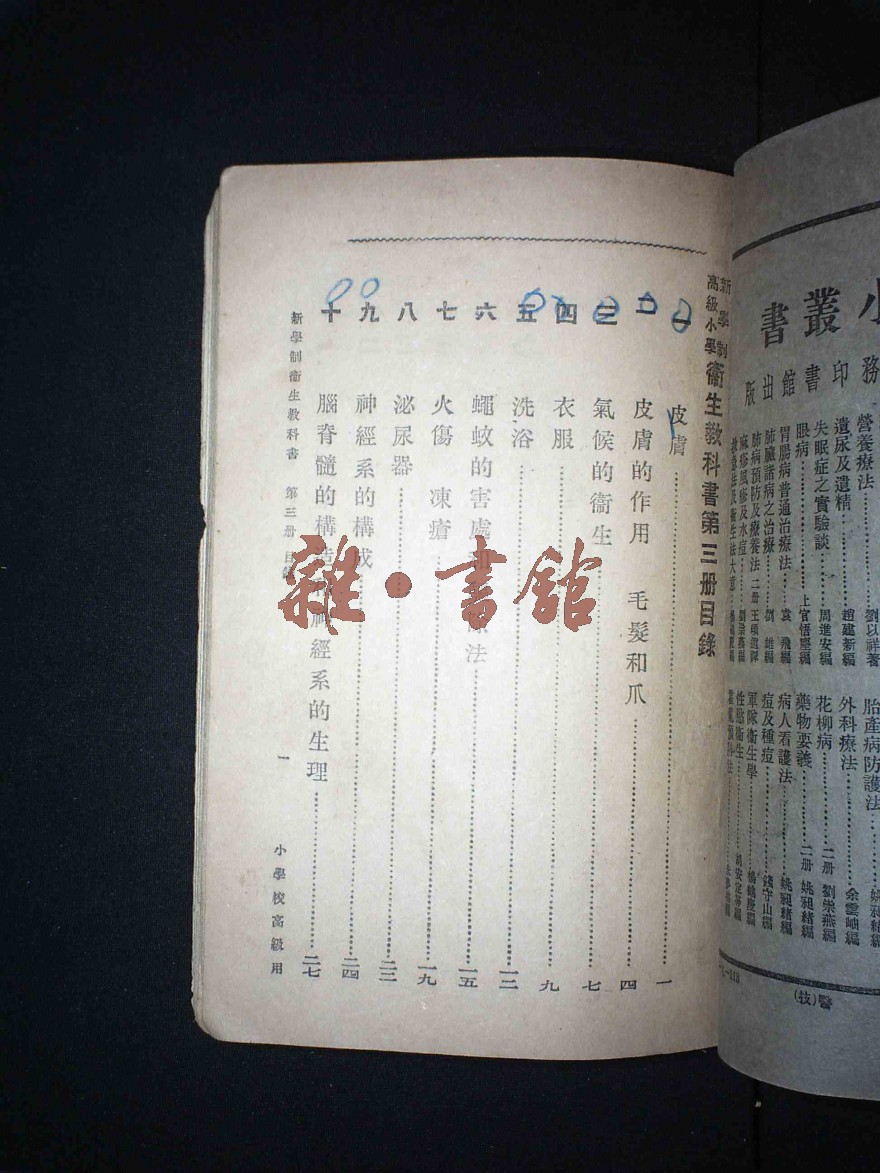 小叢書
務印書館出版
營養療法……劉以祥著
遺尿及遺精……趙建新編
失眠症之實驗談……周進安編
眼病……上官悟塵編
胃腸病普通治療法……袁飛編
肺臟諸病之治療……劉雄編
肺病預防及療養法 二册
麻疹風疹及水痘……劉崇燕編
救急法及衞生法大意
胎產病防護法……姚昶緒編
外科療法……余雲岫編
花柳病……二册 劉崇燕編
藥物要義……二册 姚昶緒編
病人看護法……姚昶緒編
痘及種痘……錢守山編
軍隊衞生學
性慾衞生
醫(技)
新學制
高級小學
衞生教科書第三册目錄
一 皮膚……一
二 皮膚的作用 毛髮和爪……四
三 氣候的衞生……七
四 衣服……九
五 洗浴……一三
六 蠅蚊的害處 法……一五
七 火傷 凍瘡……一九
八 泌尿器……二三
九 神經系的構成……二四
十 腦脊髓的構造 神經系的生理……二七
新學制衞生教科書 第三册 目錄
一
小學校高級用
雜·書館